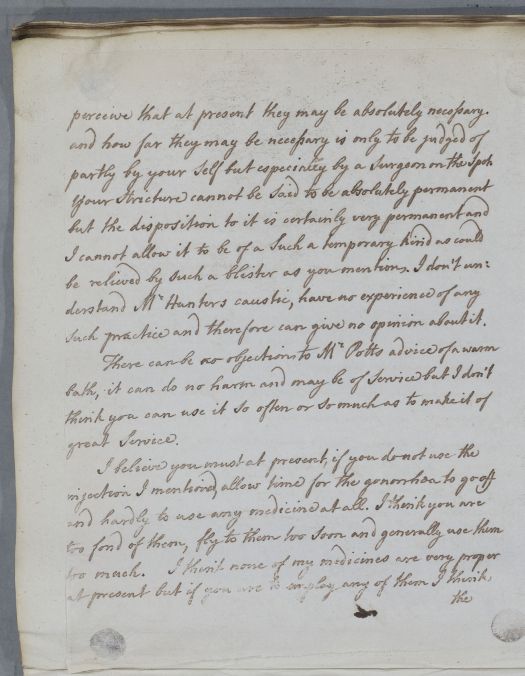 perceive that at present they may be absolutely necessary.
and how far they may be necessary is only to be judged of
partly by your self but especially by a Surgeon on the Spot
Your Stricture cannot be said to be absolutely permanent
but the disposition to it is certainly very permanent and
I cannot allow it to be of a Such a temporary kind as could
be relieved by such a blister as you mention. I don't un:
derstand Mr Hunters caustic, have no experience of any
such practice and therefore can give no opinion about it.
There can be no objections to Mr Potts advice of a warm
bath, it can do no harm and may be of Service but I don't
think you can use it so often or so much as to make it of
great Service.
I believe you must at present, if you do not use the
injection I mentioned, allow time for the gonorrhœa to go off
and hardly to use any medicine at all. I think you are
too fond of them, fly to them too soon and generally use them
too much. I think none of my medicines are very proper
at present but if you are to employ any of them I think
the